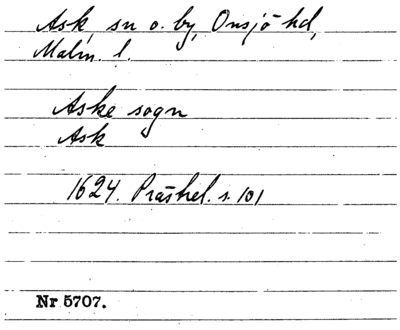 Ask, sn o. by, Onsjö hd,
Malm. l.
Aske sogn
Ask
1624. Präsrel. s. 101
Nr 5707.